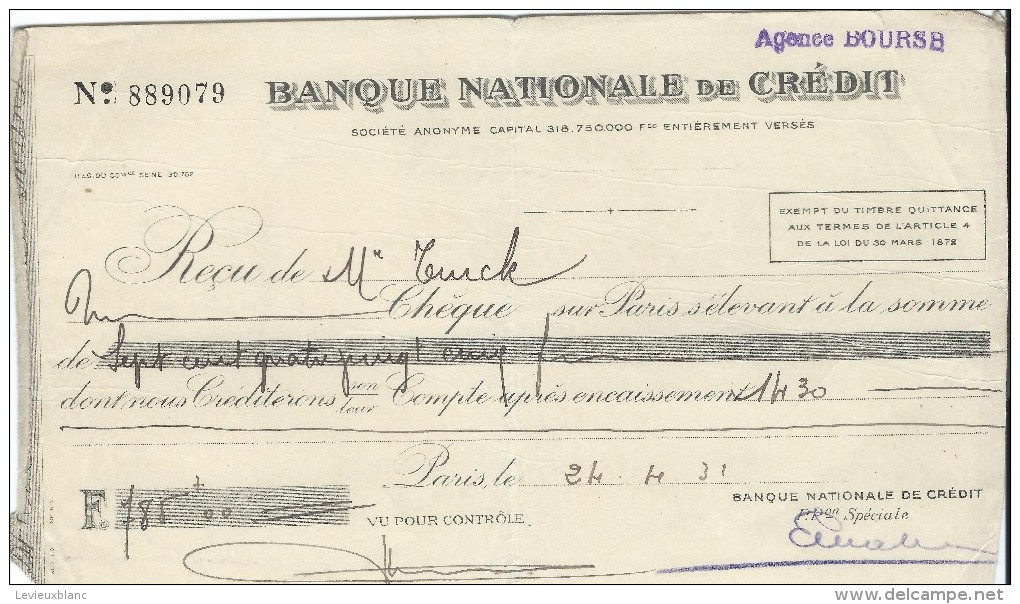 Agence BOURSE
Nº 889079 BANQUE NATIONALE DE CRÉDIT
SOCIÉTÉ ANONYME CAPITAL 318.750.000 Fcs ENTIÈREMENT VERSÉS
REG. DU COMce SEINE 30.762
EXEMPT DU TIMBRE QUITTANCE
AUX TERMES DE L'ARTICLE 4
DE LA LOI DU 30 MARS 1872
Reçu de Mr Turck
Un Chèque sur Paris s'élevant à la somme
de Sept cent quatre vingt cinq f
dont nous Créditerons son/leur Compte après encaissement 1430
Paris, le 24 4 31
F. 785 00
BANQUE NATIONALE DE CRÉDIT
VU POUR CONTRÔLE
P.Pon Spéciale
Levieuxblanc
delcampe.net